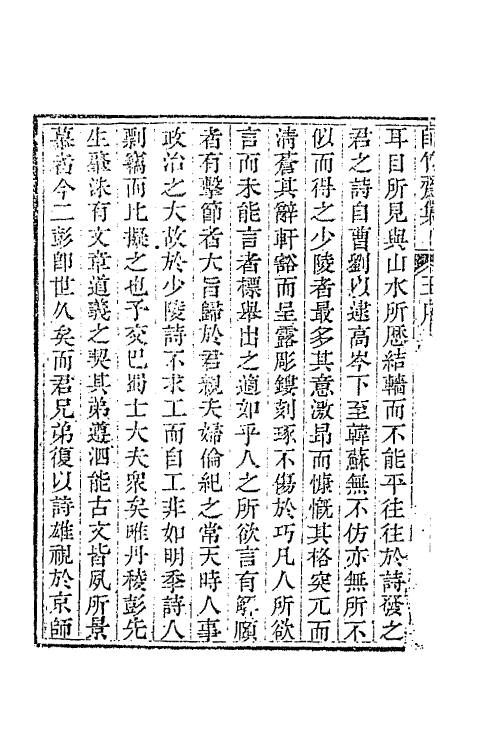 耳目所見與山水所歷結轖而不能平往往於詩發之
君之詩自曹劉以逮高岑下至韓蘇無不仿亦無所不
似而得之少陵者最多其意激昻而慷慨其格突兀而
淸蒼其辭軒豁而呈露彫鏤刻琢不傷於巧凡人所欲
言而未能言者標舉出之適如乎人之所欲言有解頤
者有擊節者大旨歸於君親夫婦倫紀之常天時人事
政治之大故於少陵詩不求工而自工非如明季詩人
剽竊而比擬之也予交巴蜀士大夫衆矣唯丹稜彭先
生磬洙有文章道義之契其弟遵泗能古文皆夙所景
慕者今二彭卽世久矣而君兄弟復以詩雄視於京師